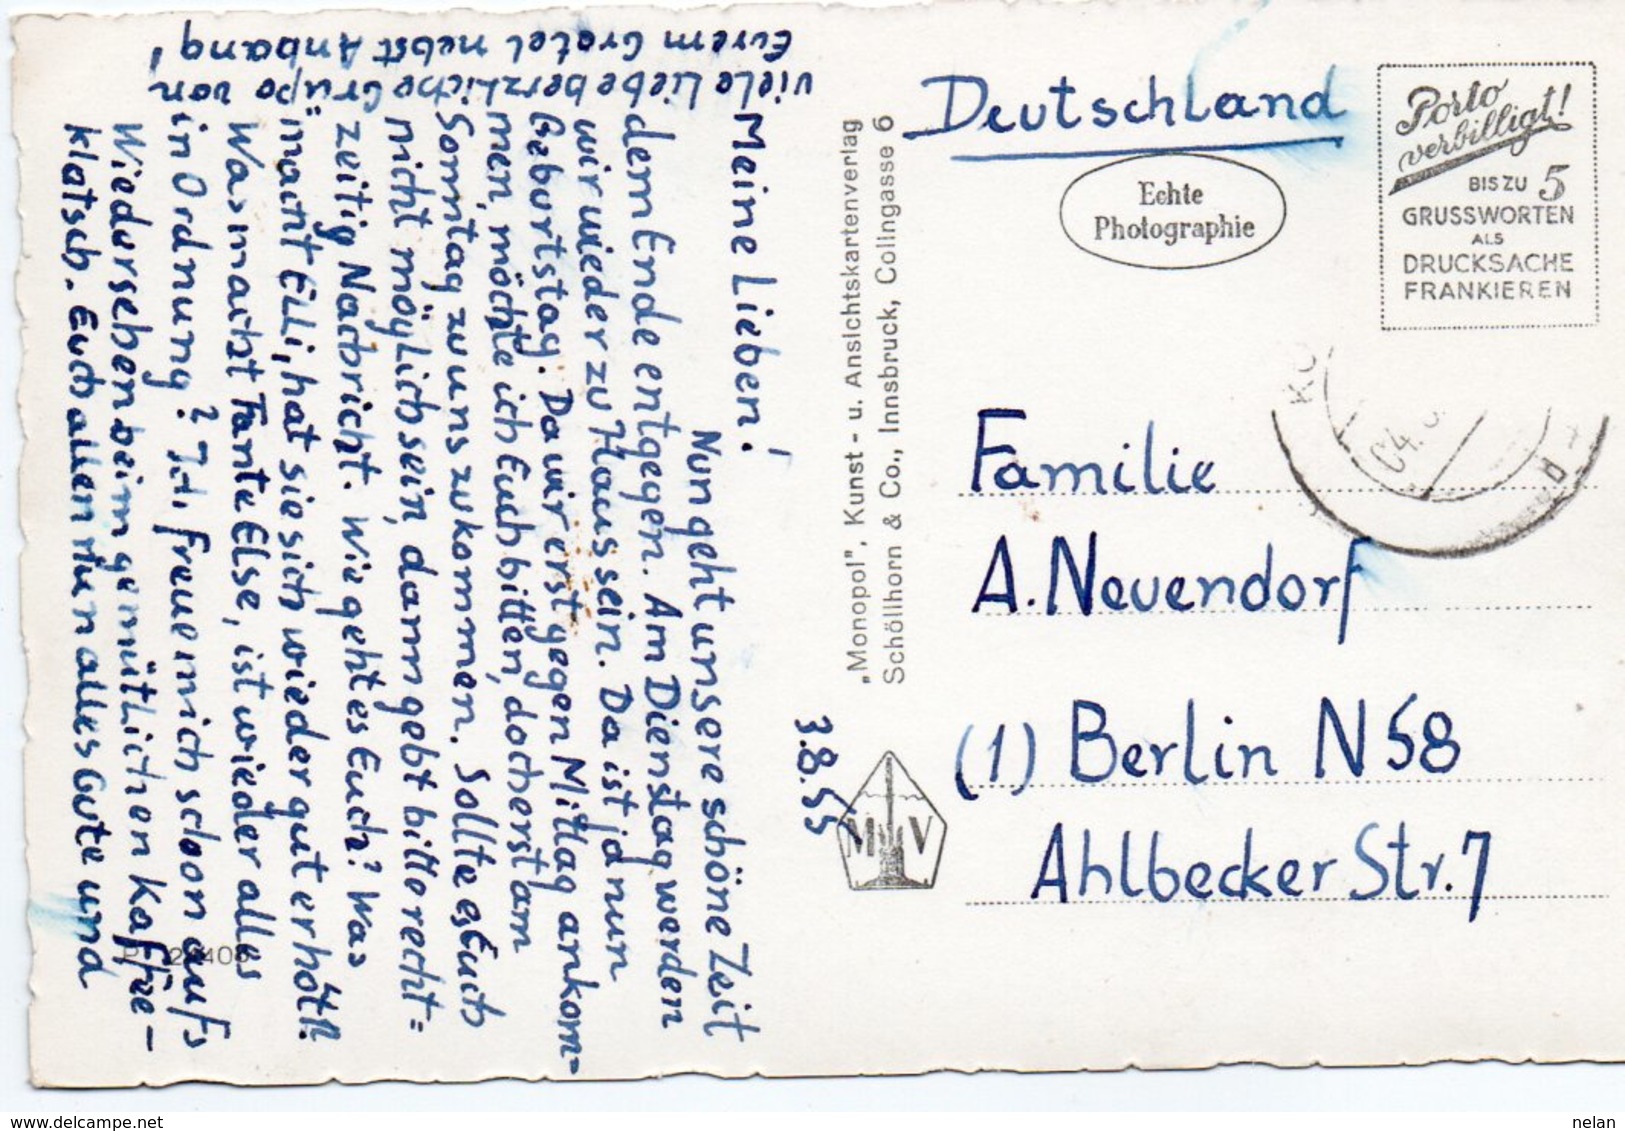 Meine Lieben!
Nun geht unsere schöne Zeit
dem Ende entgegen. Am Dienstag werden
wir wieder zu Haus sein. Da ist ja nun
Geburtstag. Da wir erst gegen Mittag ankom-
men, möchte ich Euch bitten, doch erst am
Sonntag zu uns zu kommen. Sollte es Euch
nicht möglich sein, dann gebt bitte recht=
zeitig Nachricht. Wie geht es Euch? Was
macht Elli, hat sie sich wieder gut erholt?
Was macht Tante Else, ist wieder alles
in Ordnung? Ich freue mich schon aufs
Wiedersehen beim gemütlichen Kaffee-
klatsch. Euch allen nun alles Gute und
viele liebe herzliche Grüße von
Eurem Gretel nebst Anhang!
3.8.55
"Monopol", Kunst- u. Ansichtskartenverlag
Schöllhorn & Co., Innsbruck, Collngasse 6
M V
Deutschland
Echte
Photographie
Porto
verbilligt!
BIS ZU 5
GRUSSWORTEN
ALS
DRUCKSACHE
FRANKIEREN
04.
Familie
A. Neuendorf
(1) Berlin N58
Ahlbecker Str. 7
nelan